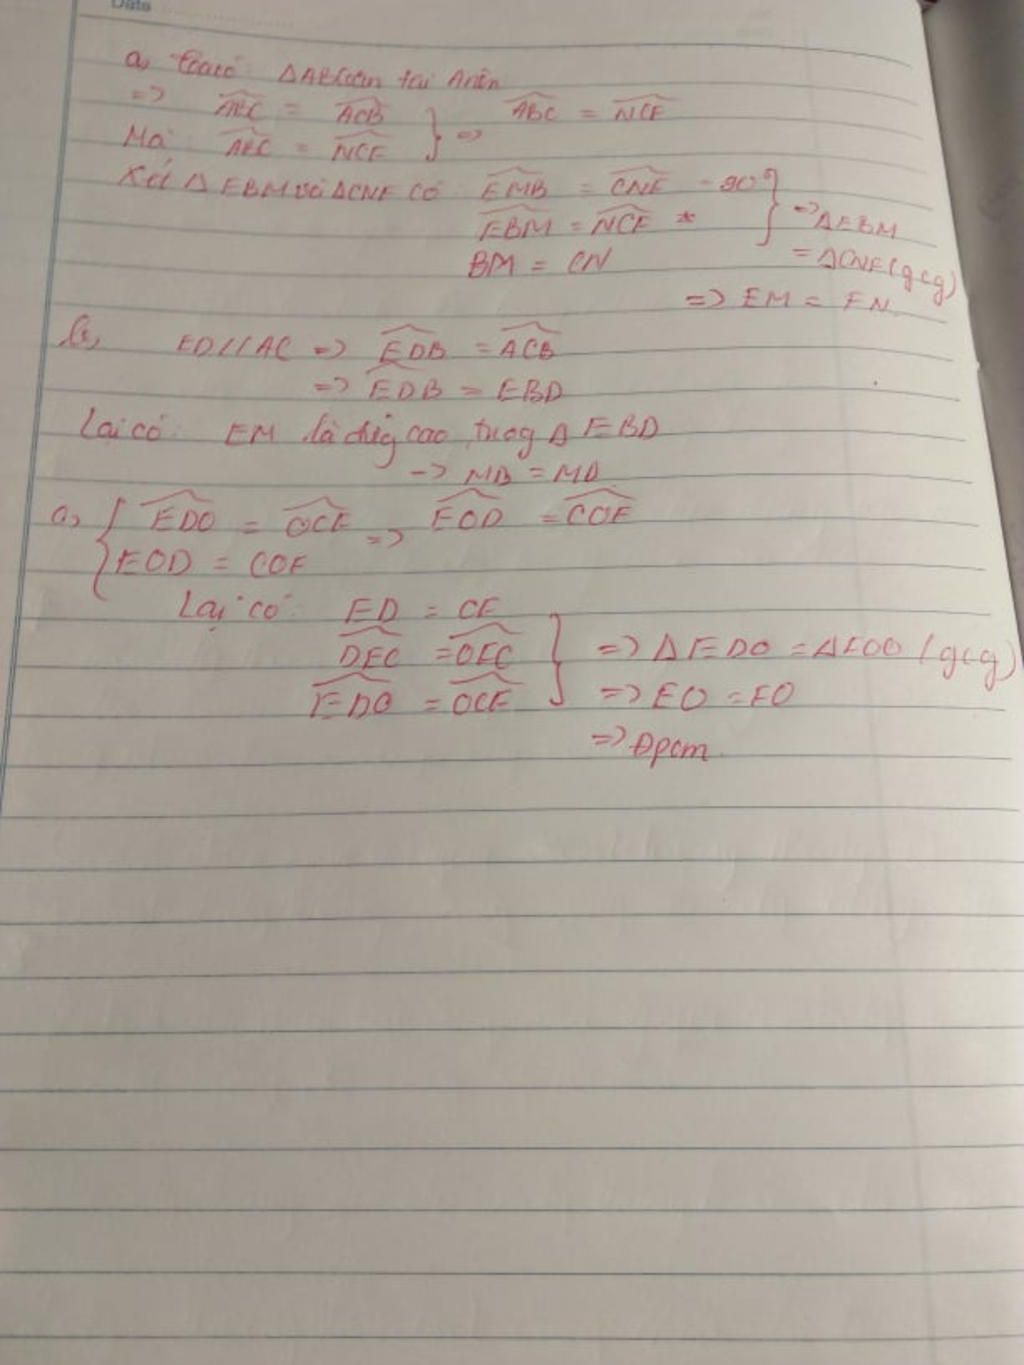 Date
a, ta có: ΔABC cân tại A nên
=> ABC = ACB } => ABC = NCF
Mà: ABC = NCF
Xét ΔEBM và ΔCNF có EMB = CNF = 90°
EBM = NCF * } => ΔEBM
BM = CN = ΔCNF (gcg)
=> EM = FN.
b, ED//AC => EDB = ACB
=> EDB = EBD
Lại có: EM là cao trong Δ EBD
-> MB = MD
a, { EDO = OCF => EOD = COF
EOD = COF
Lại có: ED = CF
DEC = OEC } => ΔEDO = (gcg)
EDO = OCF => EO = FO
=> Đpcm.